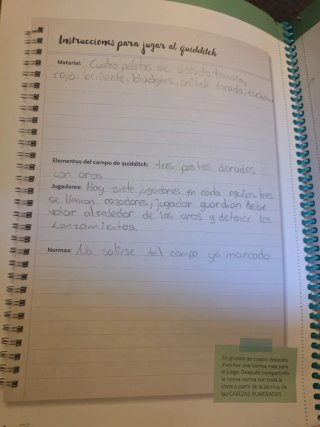 Instrucciones para jugar al quidditch
Material: Cuatro pelotas de
rojo brillante, bludgers, snitch dorada, escoba
Elementos del campo de quidditch: tres postes dorados
con aros.
Jugadores: Hay siete jugadores en cada equipo, tres
se llaman cazadores, jugador guardian debe
volar alrededor de los aros y detener los
lanzamientos.
Normas: No salirse del campo ya marcado
En grupos de cuatro deberéis
inventar una norma más para
el juego. Después compartiréis
la nueva norma con toda la
clase a partir de la técnica de
las CABEZAS NUMERADAS.